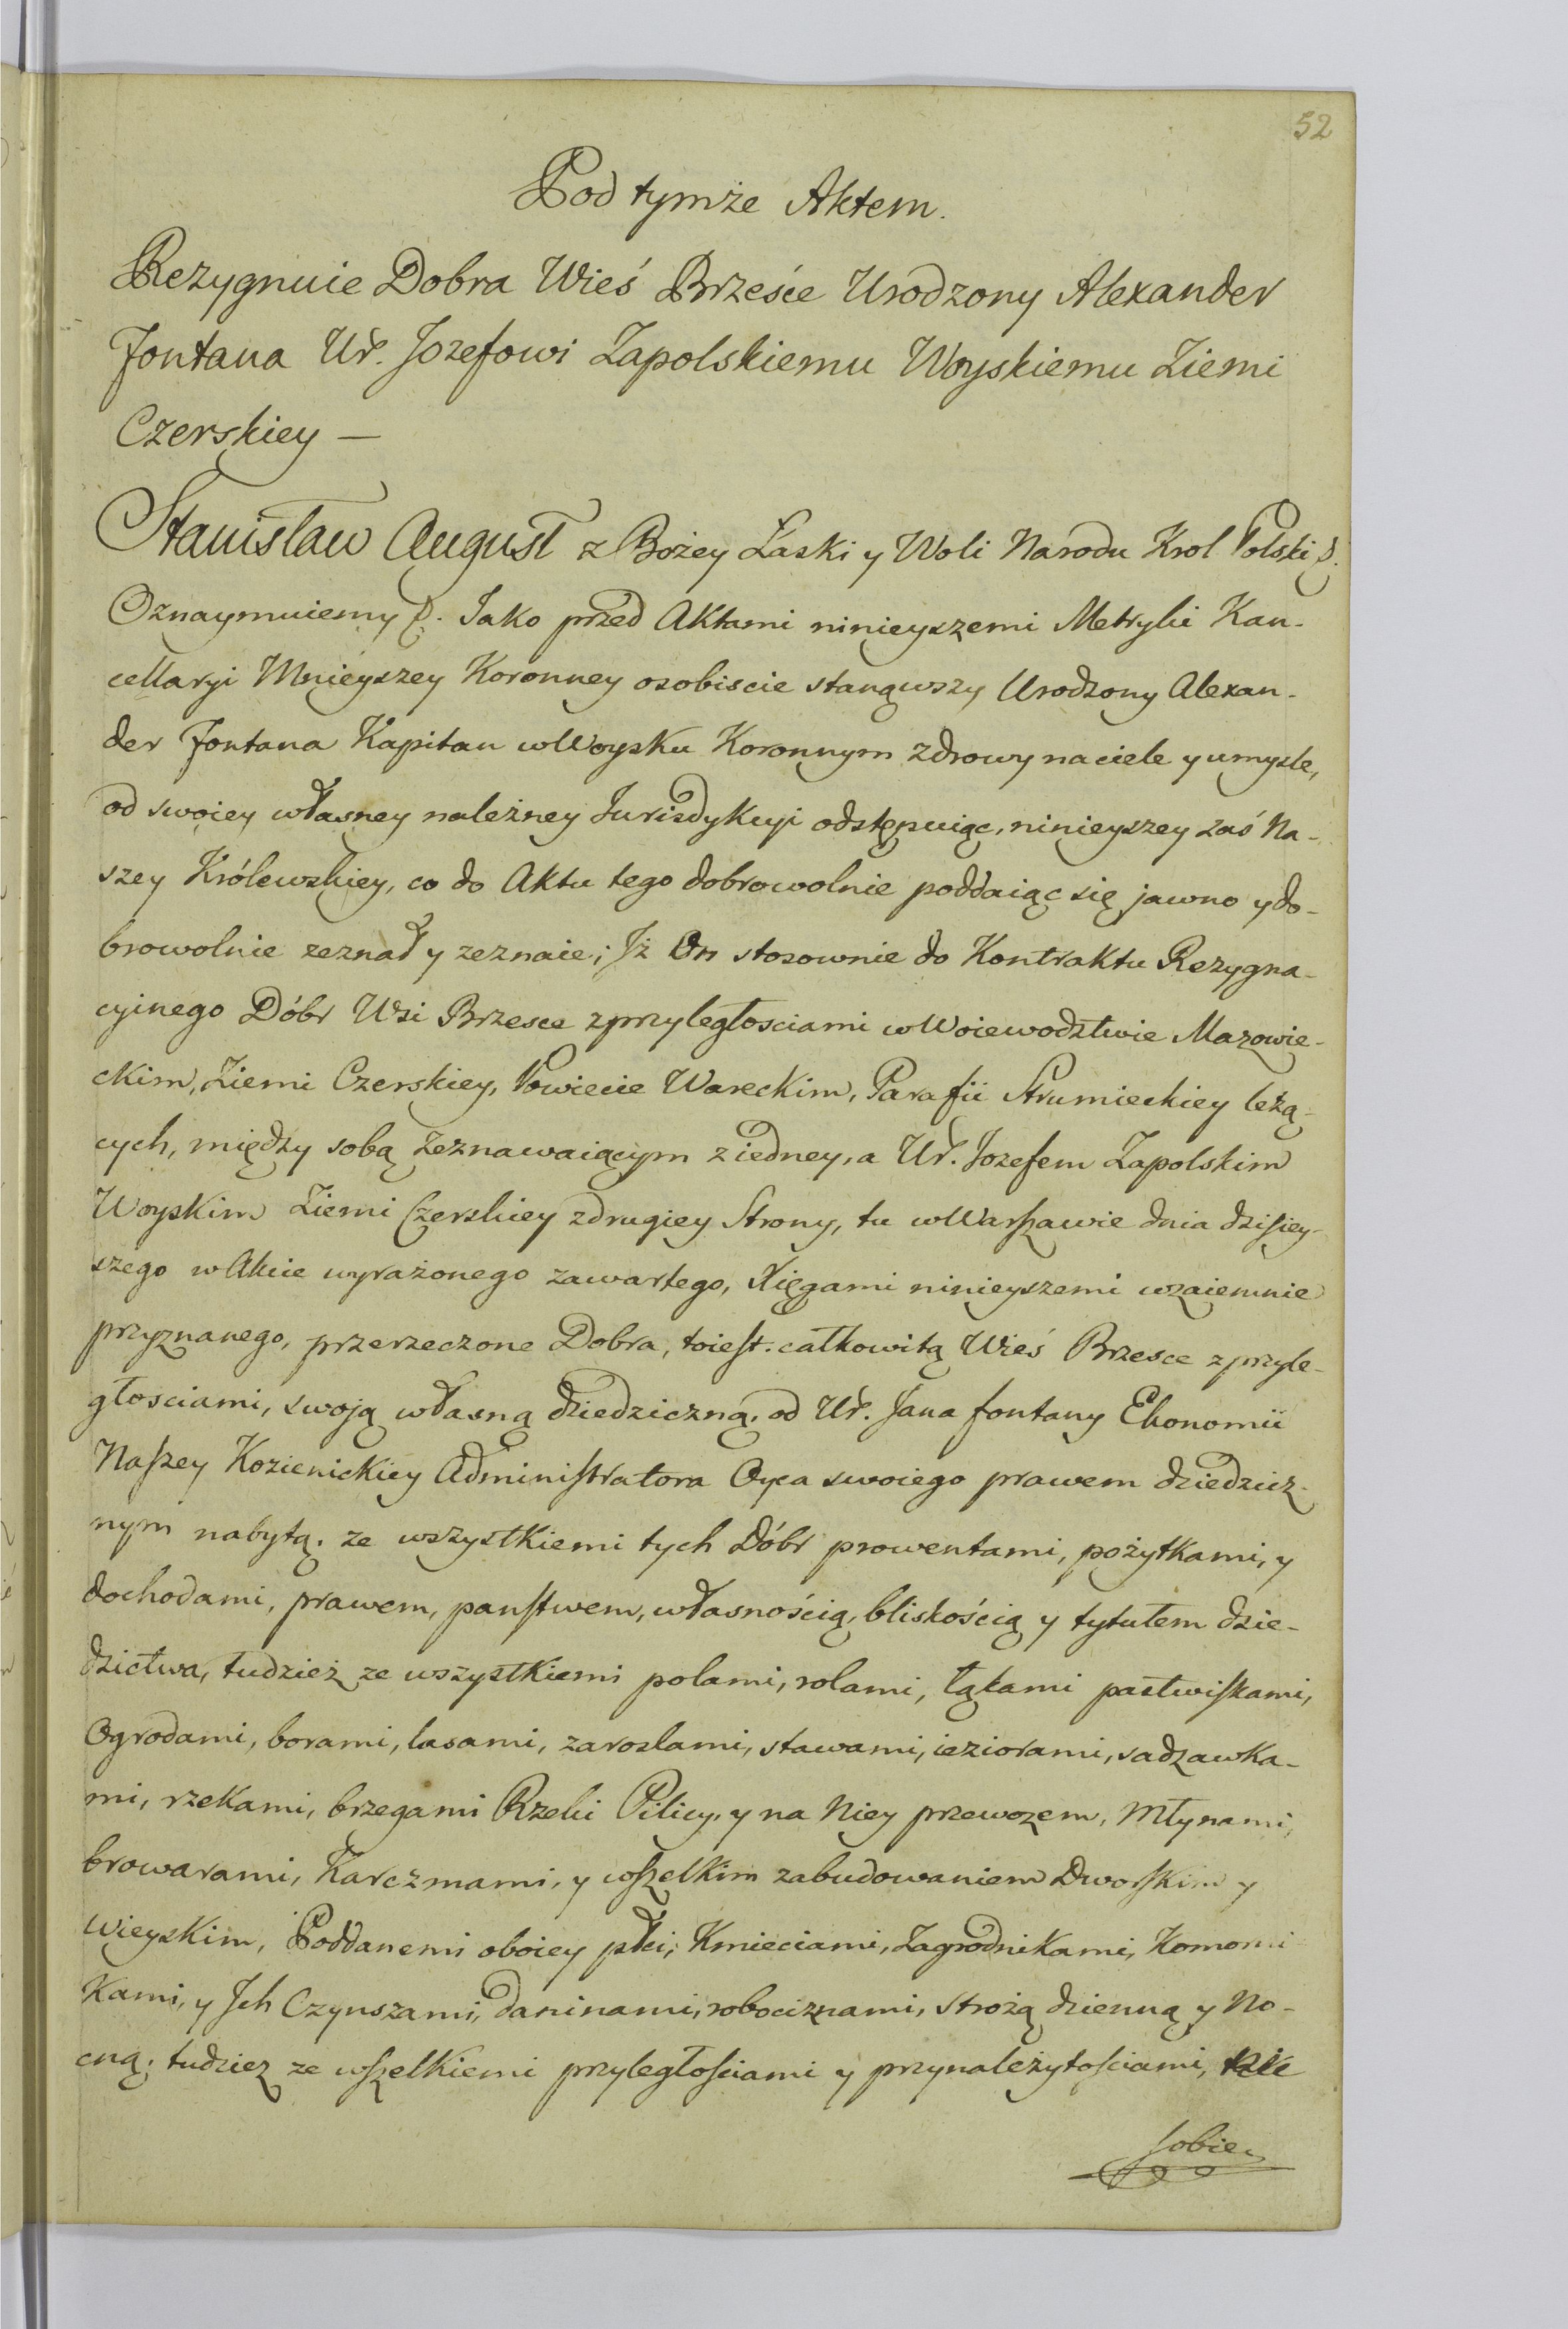 52
Pod tymże Aktem.
Rezygnuie Dobra Wieś Brzeście Urodzony Alexander
Fontana Ur. Jozefowi Zapolskiemu Woyskiemu Ziemi
Czerskiey —
Stanisław August z Bożey Łaski y Woli Narodu Krol Polski &.
Oznaymuiemy &. Jako przed Aktami ninieyszemi Metryki Kan-
cellaryi Mnieyszey Koronney osobiscie stanąwszy Urodzony Alexan-
der Fontana Kapitan w Woysku Koronnym zdrowy na ciele y umysle,
od swoiey własney należney Jurisdykcyi odstępuiąc, ninieyszey zaś Na-
szey Królewskiey, co do Aktu tego dobrowolnie poddaiąc się jawno y do-
browolnie zeznał y zeznaie; Jż On stosownie do Kontraktu Rezygna-
cyinego Dóbr Wsi Brzesce z przyległosciami w Woiewodztwie Mazowie-
ckim, Ziemi Czerskiey, Powiecie Wareckim, Parafii Strumieckiey leżą-
cych, między sobą zeznawaiącym z iedney, a Ur. Jozefem Zapolskim
Woyskim Ziemi Czerskiey z drugiey Strony, tu w Warszawie dnia dzisiey-
szego w Akcie wyrażonego zawartego, Xięgami ninieyszemi wzaiemnie
przyznanego, przerzeczone Dobra, toiest. całkowitą Wieś Brzesce z przyle-
głosciami, swoją własną dziedziczną, od Ur. Jana fontany Ekonomii
Naszey Kozienickiey Administratora Oyca swoiego prawem dziedzicz-
nym nabytą. ze wszystkiemi tych Dóbr prowentami, pożytkami, y
dochodami, prawem, panstwem, własnością, bliskością y tytułem dzie-
dzictwa, tudzież ze wszystkiemi polami, rolami, łąkami pastwiskami,
Ogrodami, borami, lasami, zaroslami, stawami, ieziorami, sadzawka-
mi, rzekami, brzegami Rzeki Pilicy, y na Niey przewozem, Młynami,
browarami, Karczmami, y wszelkim zabudowaniem Dworskim y
wieyskim, Poddanemi oboiey płci, Kmieciami, Zagrodnikami, Komorni-
kami, y Jch Czynszami, daninami, robociznami, strożą dzienną y No-
cną. tudziez ze wszelkiemi przyległościami y przynależytościami, nic
sobie